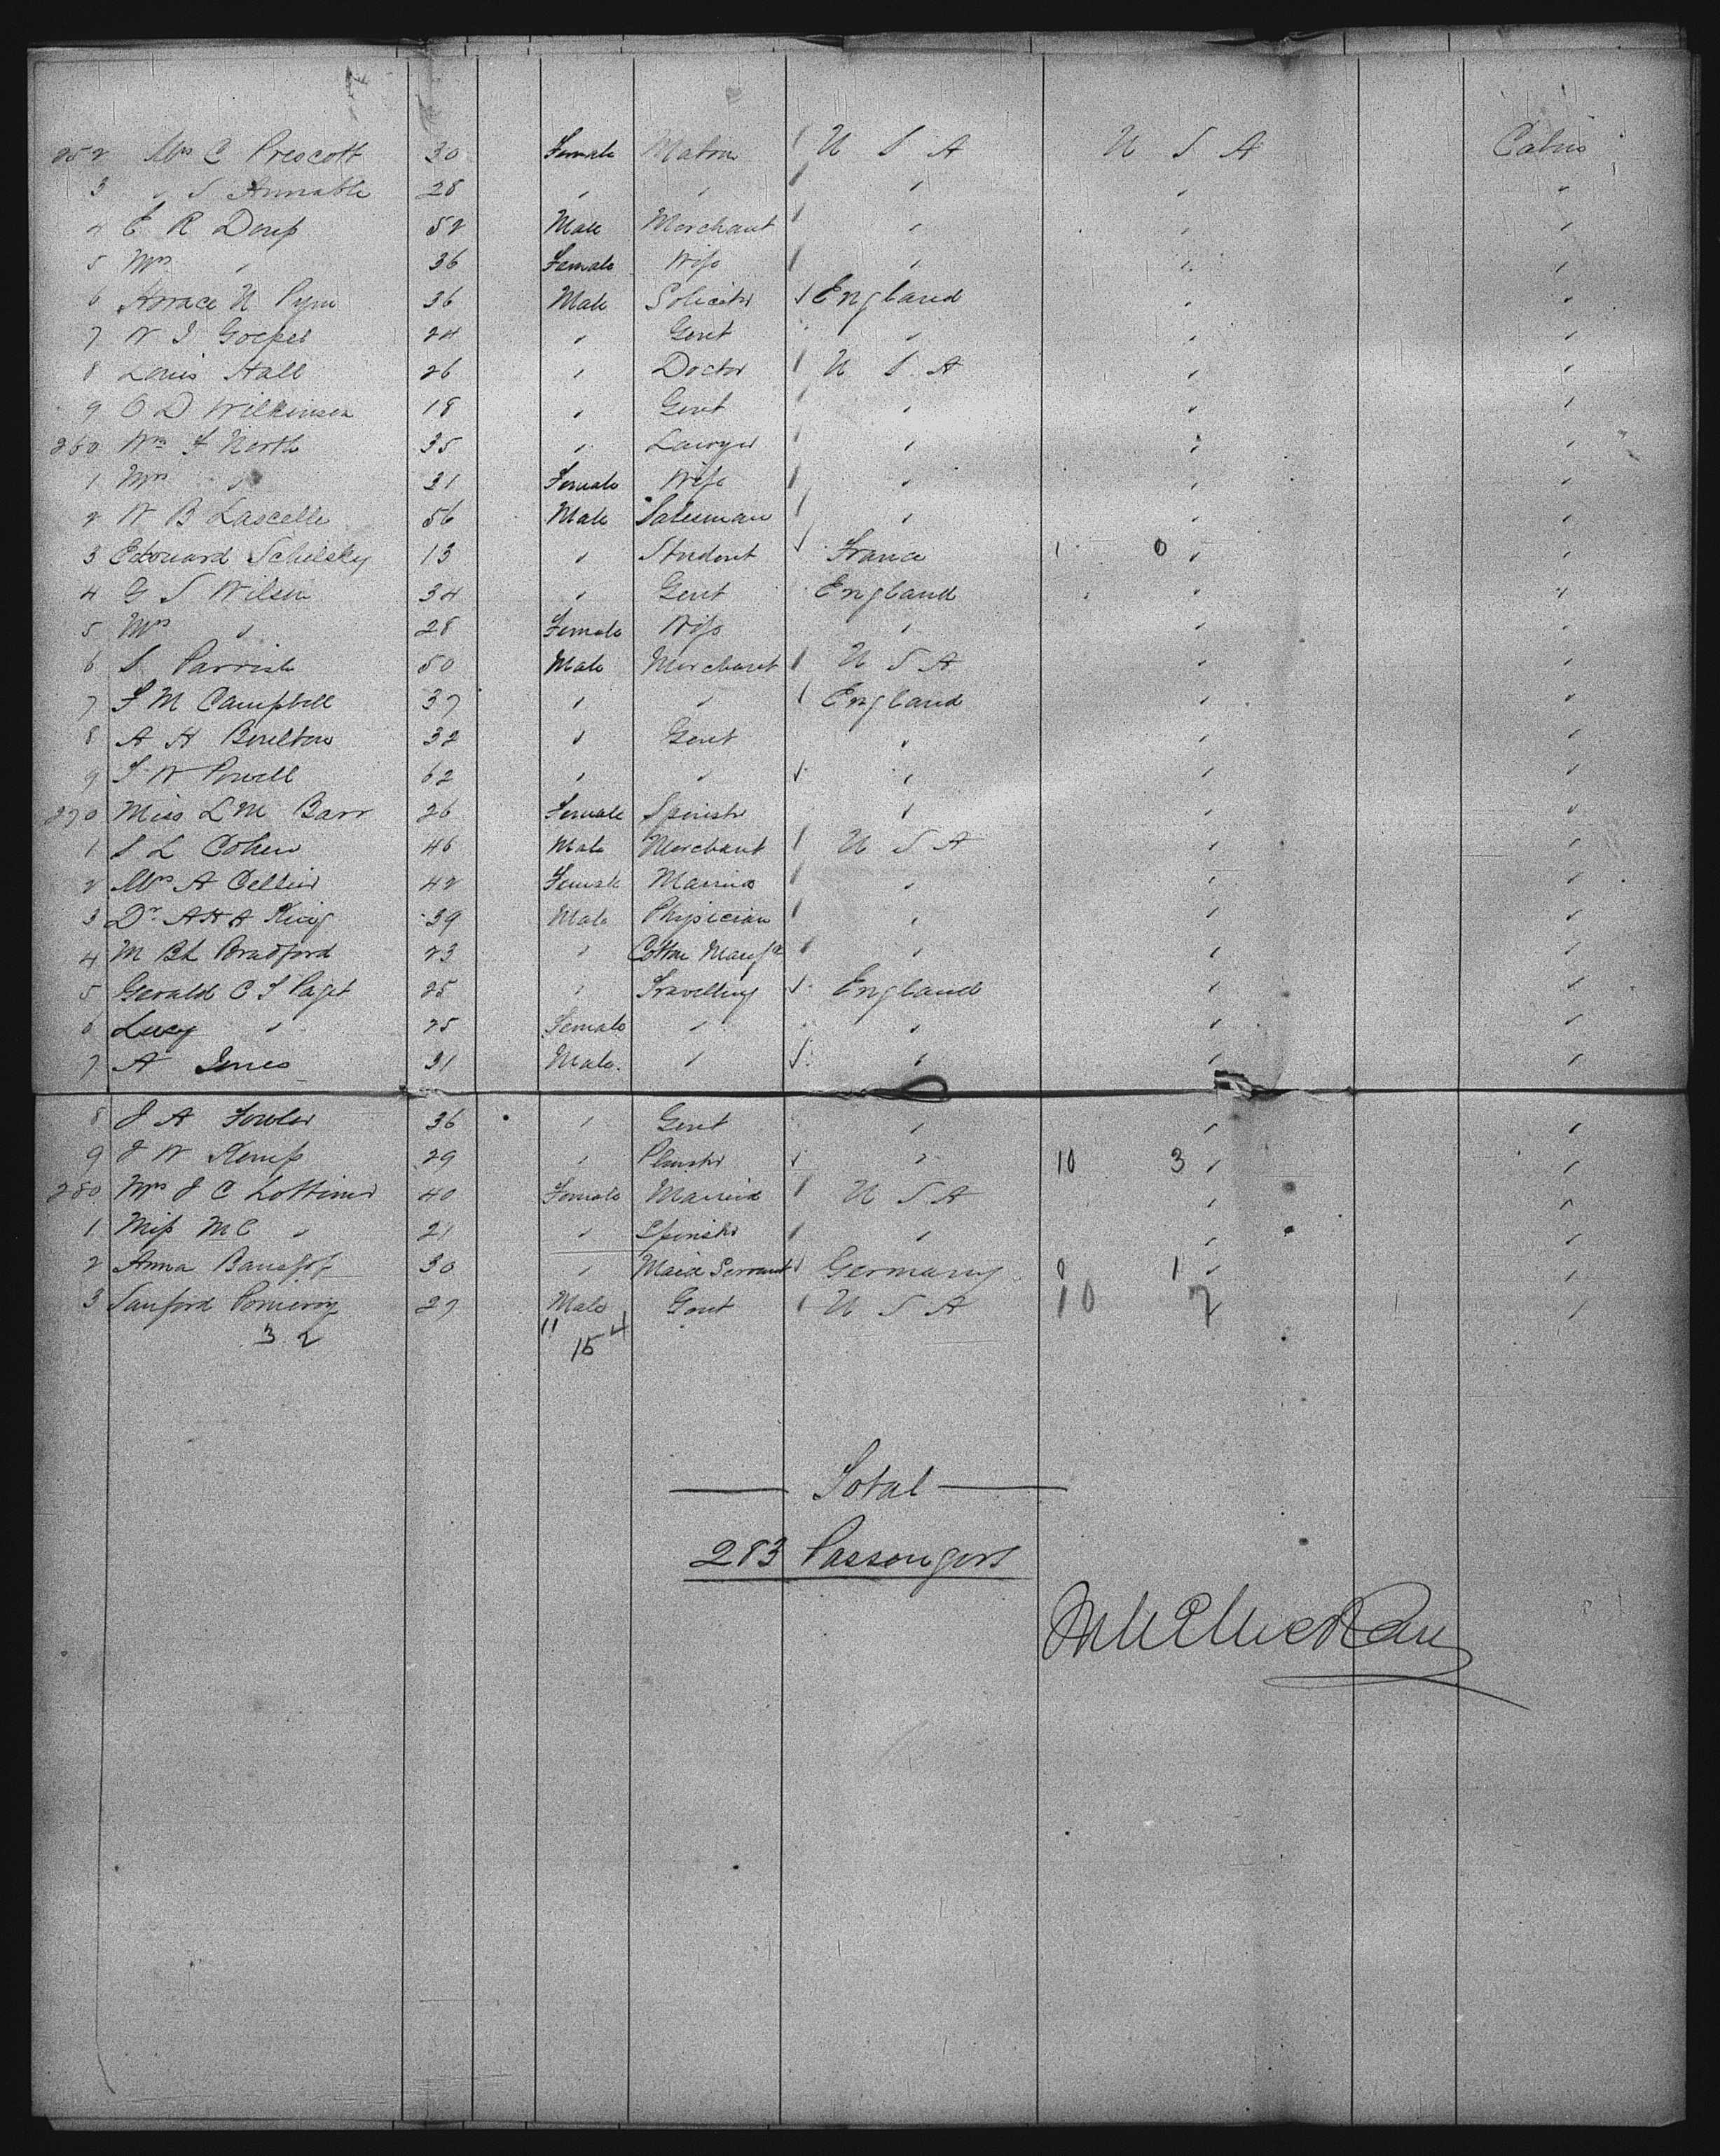 252 Mrs C Prescott 30 Female Matron U S A U S A Cabin
3 " S Annable 28 " " " " "
4 E R Denp 52 Male Merchant " " "
5 Mrs " 36 Female Wife " " "
6 Horace N Pym 36 Male Solicitor England " "
7 W J Goepel 24 " Gent " " "
8 Louis Hall 26 " Doctor U S A " "
9 O D Wilkinson 18 " Gent " " "
260 Wm F North 35 " Lawyer " " "
1 Mrs " 31 Female Wife " " "
2 W B Lascelle 56 Male Salesman " " "
3 Edouard Schilsky 13 " Student France 1 0 " "
4 G S Wilson 34 " Gent England " "
5 Mrs " 28 Female Wife " " "
6 S Parrish 50 Male Merchant U S A " "
7 F M Campbell 37 " " England " "
8 A H Boulton 32 " Gent " " "
9 T W Powell 62 " " " " "
270 Miss L M Barr 26 Female Spinstr " " "
1 S L Cohen 46 Male Merchant U S A " "
2 Mrs A Cellier 42 Female Married " " "
3 Dr A H A King 39 Male Physician " " "
4 M Bt Bradford 23 " Cotton Manufr " " "
5 Gerald C S Paget 25 " Travelling England " "
6 Lucy " 25 Female " " " "
7 A Jones 31 Male " " " "
8 J A Fowler 36 " Gent " " "
9 J W Kemp 29 " Planter " 10 3 " "
280 Mrs J C Lottimer 40 Female Married U S A " "
1 Miss M C " 21 " Spinstr " " "
2 Anna 30 " Maid Servant Germany 1 " "
3 Sanford Pomeroy 27 Male Gent U S A 10 7 " "
32 11 15 4
Total
283 Passengers